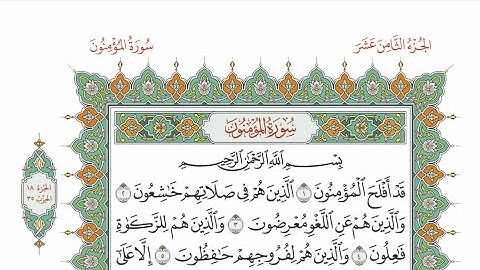 الجزء الثامن عشر
سورة المؤمنون
سورة المؤمنون
بسم الله الرحمن الرحيم
قَدۡ أَفۡلَحَ ٱلۡمُؤۡمِنُونَ ١ ٱلَّذِينَ هُمۡ فِي صَلَاتِهِمۡ خَٰشِعُونَ ٢
وَٱلَّذِينَ هُمۡ عَنِ ٱللَّغۡوِ مُعۡرِضُونَ ٣ وَٱلَّذِينَ هُمۡ لِلزَّكَوٰةِ
فَٰعِلُونَ ٤ وَٱلَّذِينَ هُمۡ لِفُرُوجِهِمۡ حَٰفِظُونَ ٥ إِلَّا عَلَىٰٓ
الجزء ١٨
الحزب ٣٥